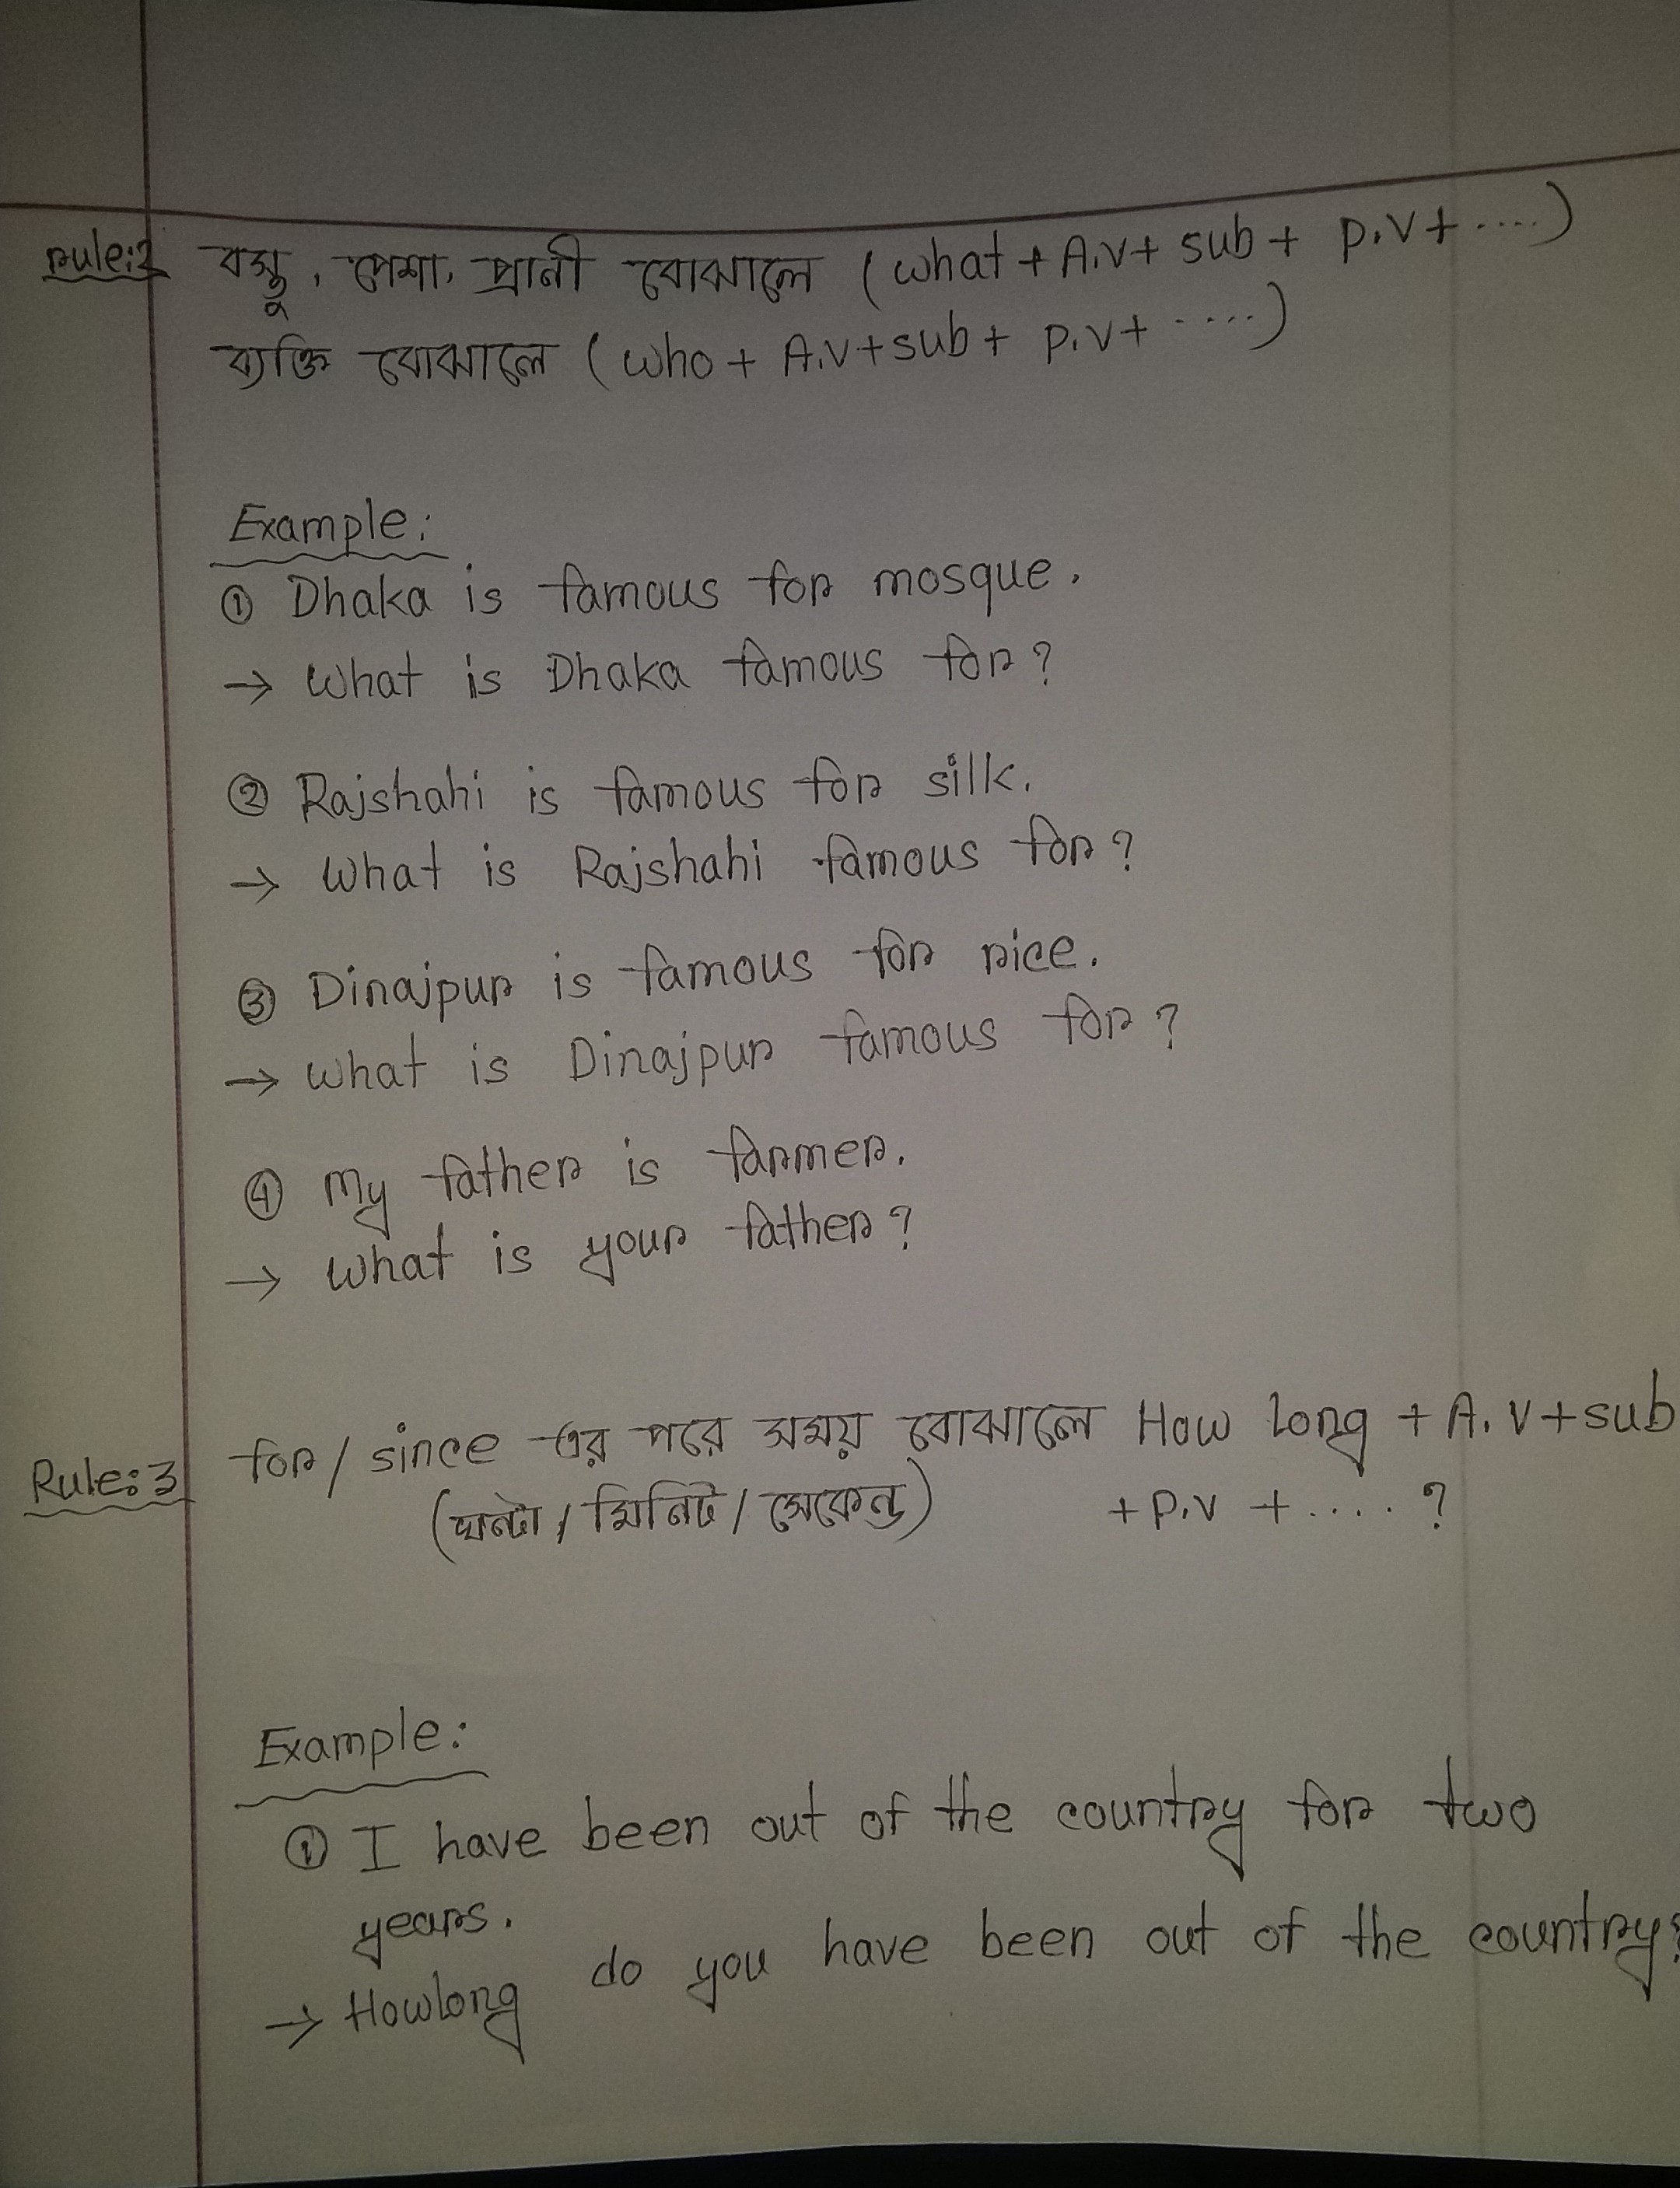 rule:2 বস্তু, পেশা, প্রানী বোঝালে (what + A.V + sub + P.V + ....)
ব্যক্তি বোঝালে (who + A.V + sub + P.V + ....)
Example:
① Dhaka is famous for mosque.
→ What is Dhaka famous for?
② Rajshahi is famous for silk.
→ What is Rajshahi famous for?
③ Dinajpur is famous for rice.
→ What is Dinajpur famous for?
④ My father is farmer.
→ What is your father?
Rule:3 for/since এর পরে সময় বোঝালে How long + A.V + sub
(ঘন্টা/মিনিট/সেকেন্ড) + P.V + .... ?
Example:
① I have been out of the country for two
years.
→ Howlong do you have been out of the country?